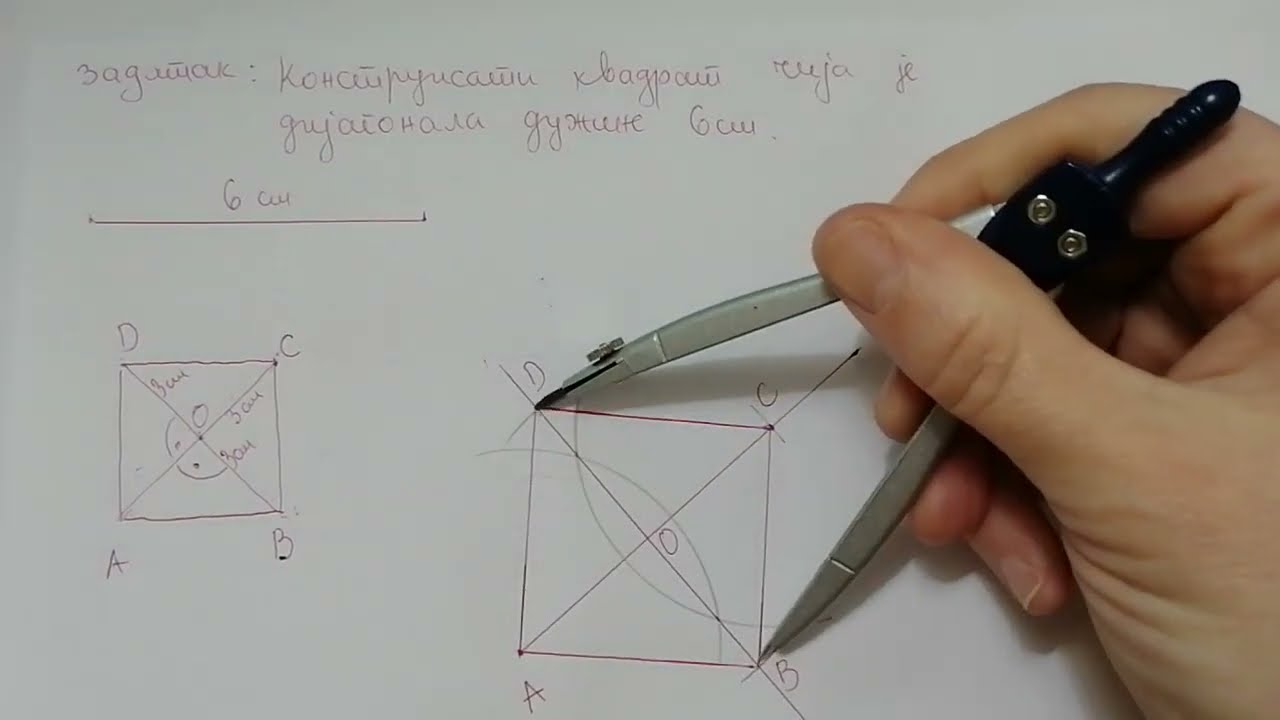 Задатак: Конструисати квадрат чија је
дијагонала дужине 6cm.
6 cm
D
C
3cm
O
3cm
3cm
A
B
D
C
O
A
B